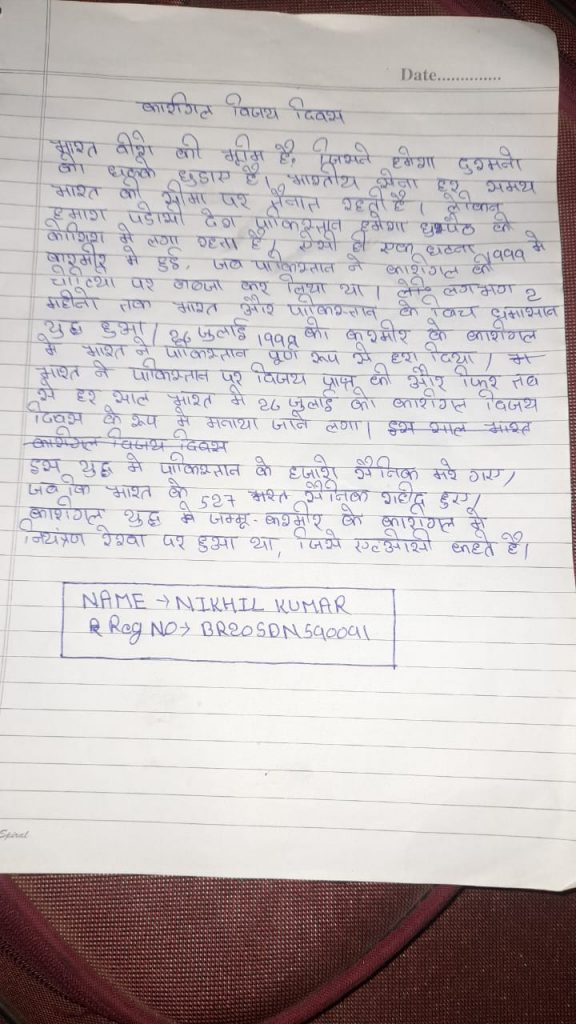 Date..............
कारगिल विजय दिवस
भारत वीरो की भूमि है, जिसने हमेशा दुश्मनो
को छक्के छुडाए है। भारतीय सेना हर समय
भारत की सीमा पर तैनात रहती है। लेकिन
हमारा पडोसी देश पाकिस्तान हमेशा घुसपैठ की
कोशिश मे लगा रहता है। एसी ही एक घटना 1999 मे
काश्मीर मे हुई, जब पाकिस्तान ने कारगिल की
चोटियो पर कब्जा कर लिया था। लगभग 2
महीनो तक भारत और पाकिस्तान के बिच घमासान
युद्ध हुआ। 26 जुलाई 1999 को कश्मीर के कारगिल
मे भारत ने पाकिस्तान पूर्ण रूप से हरा दिया।
भारत ने पाकिस्तान पर विजय प्राप्त की और फिर तब
से हर साल भारत मे 26 जुलाई को कारगिल विजय
दिवस के रूप मे मनाया जाने लगा। इस साल भारत
कारगिल विजय दिवस
इस युद्ध मे पाकिस्तान के हजारो सैनिक मारे गए।
जबकि भारत के 527 भारत सैनिक शहीद हुए।
कारगिल युद्ध मे जम्मू-कश्मीर के कारगिल मे
नियंत्रण रेखा पर हुआ था, जिसे एलओसी कहते है।
NAME → NIKHIL KUMAR
Reg NO → BR20SDN590091
Spiral